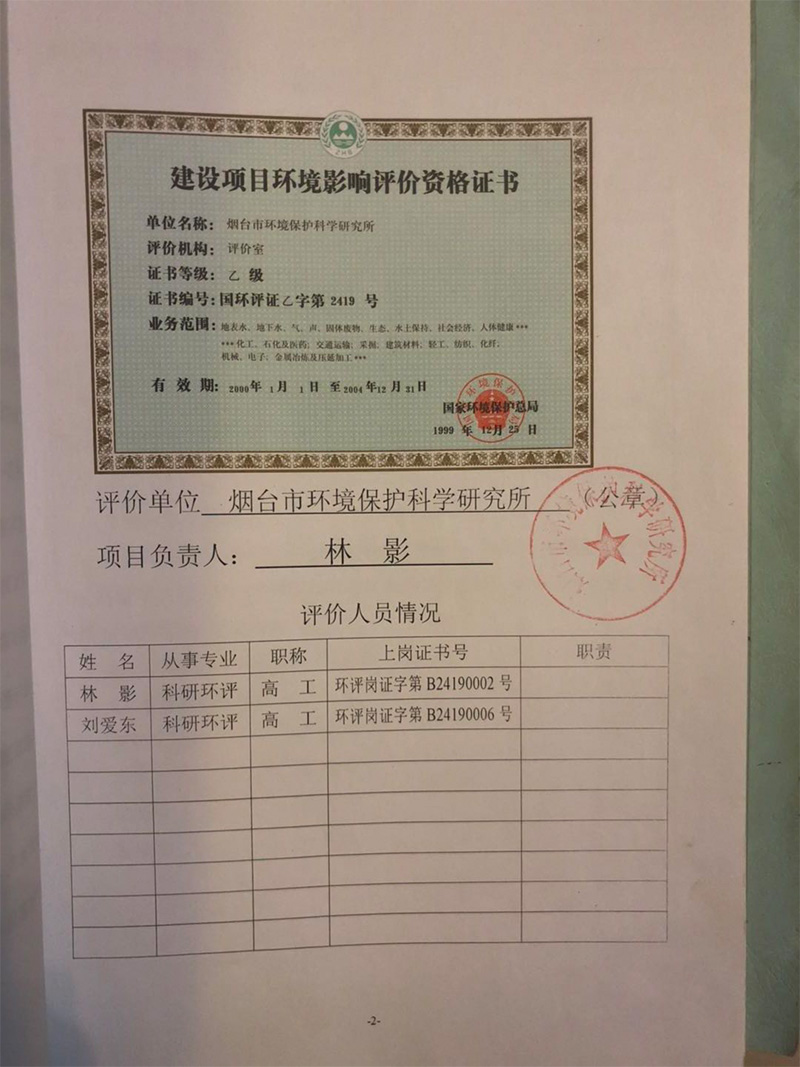 建设项目环境影响评价资格证书
单位名称：烟台市环境保护科学研究所
评价机构：评价室
证书等级：乙 级
证书编号：国环评证乙字第 2419 号
业务范围：地表水、地下水、气、声、固体废物、生态、水土保持、社会经济、人体健康***
***化工、石化及医药；交通运输；采掘；建筑材料；轻工、纺织、化纤；
机械、电子；金属冶炼及压延加工***
有 效 期：2000年 1月 1日 至2004年12月 31日
国家环境保护总局
1999 年 12月 25 日
评价单位 烟台市环境保护科学研究所 （公章）
项目负责人： 林 影
评价人员情况
姓 名 从事专业 职称 上岗证书号 职责
林 影 科研环评 高 工 环评岗证字第 B24190002 号
刘爱东 科研环评 高 工 环评岗证字第 B24190006 号
-2-